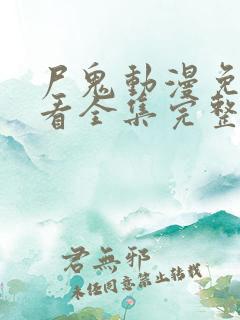 尸鬼動漫免
看全集完整
君無邪
未经同意禁止转载